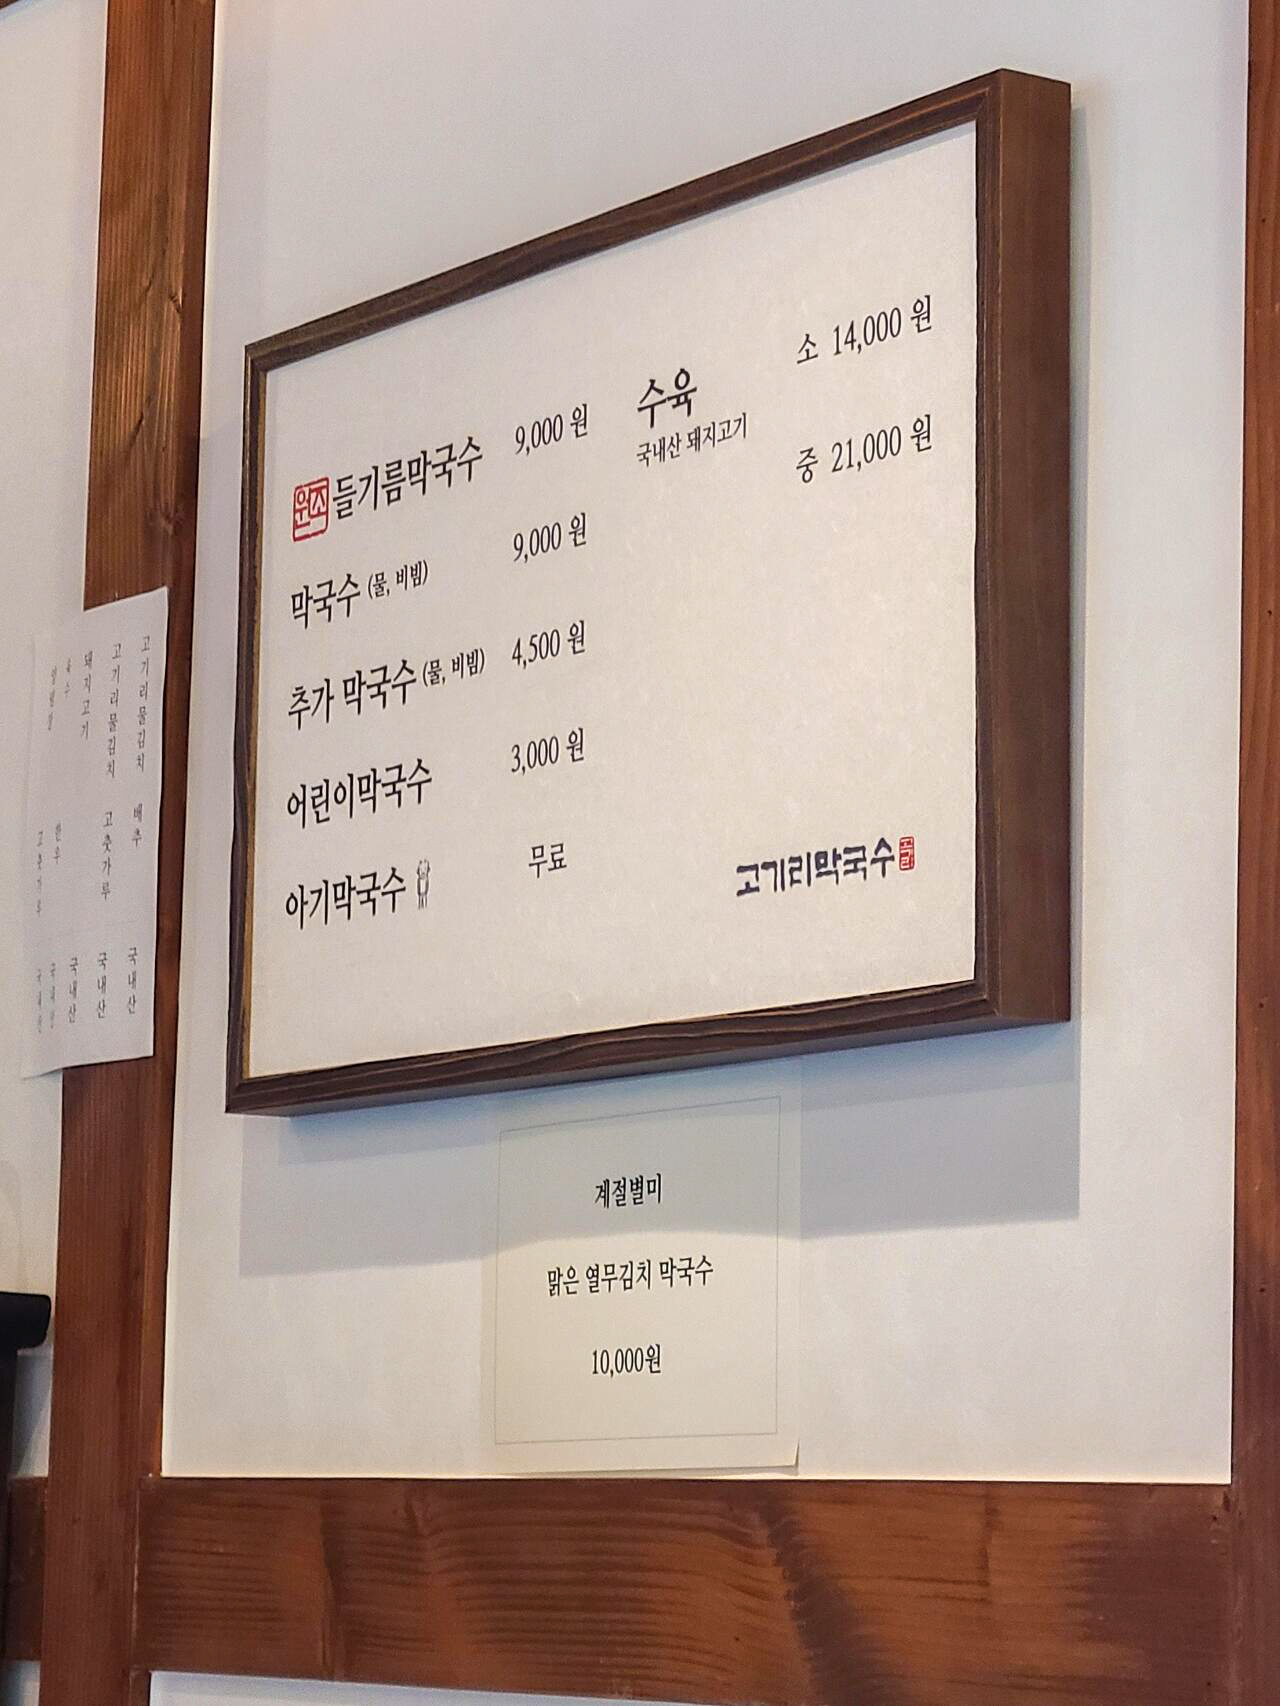 원조 들기름막국수 9,000 원
막국수 (물, 비빔) 9,000 원
추가 막국수 (물, 비빔) 4,500 원
어린이막국수 3,000 원
아기막국수 무료
수육 소 14,000 원
국내산 돼지고기 중 21,000 원
고기리막국수
계절별미
맑은 열무김치 막국수
10,000원
고기리물김치 배추 국내산
고기리물김치 고춧가루 국내산
돼지고기 국내산
육수 한우 국내산
양념장 고춧가루 국내산